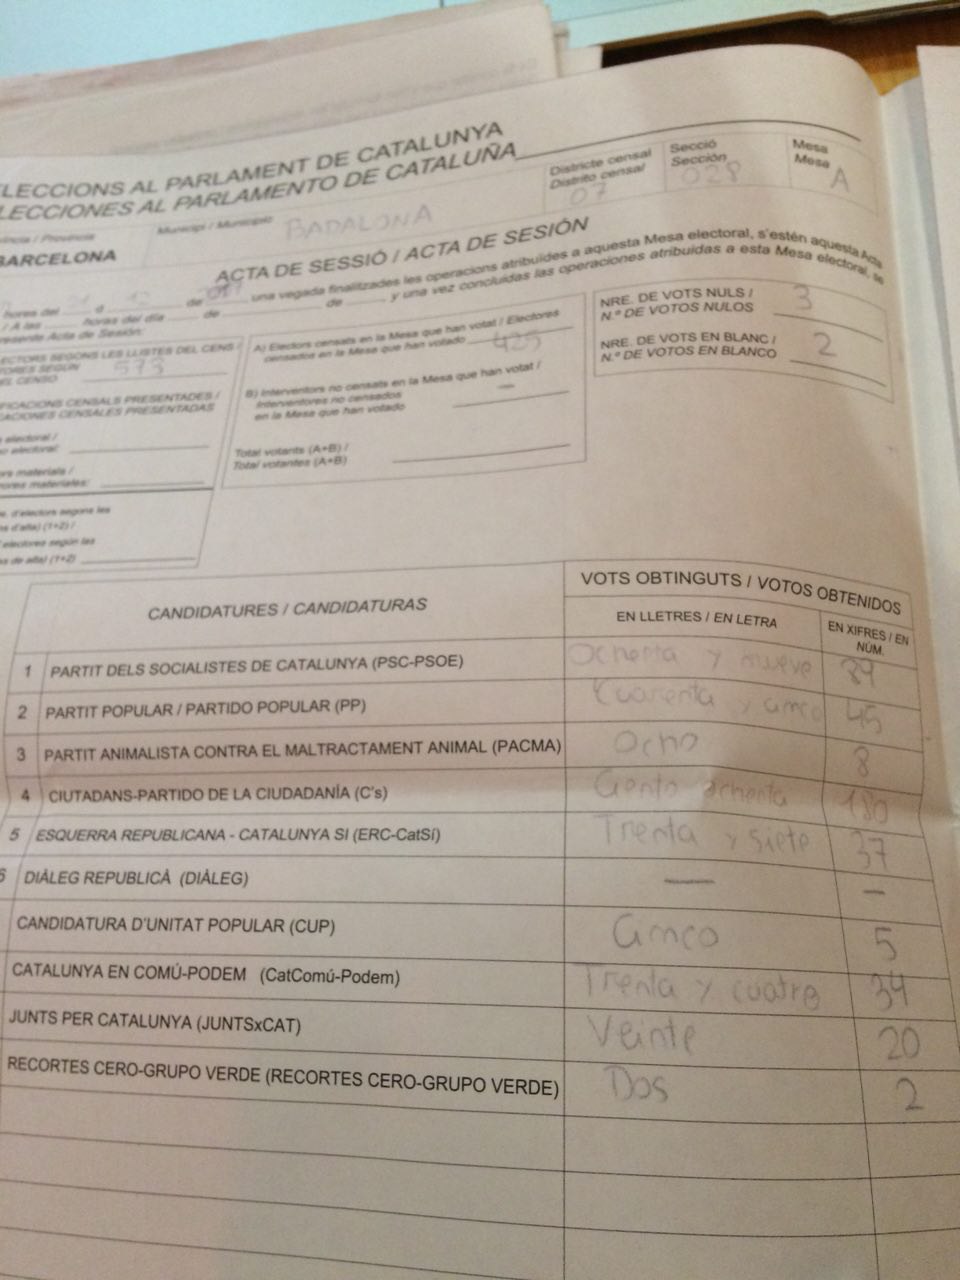 LECCIONS AL PARLAMENT DE CATALUNYA
LECCIONES AL PARLAMENTO DE CATALUÑA
Districte censal
Distrito censal
07
Secció
Sección
028
Mesa
Mesa
A
víncia / Provincia
BARCELONA
Municipi / Municipio
BADALONA
ACTA DE SESSIÓ / ACTA DE SESIÓN
hores del 21 d 12 de una vegada finalitzades les operacions atribuïdes a aquesta Mesa electoral, s'estén aquesta Acta
/ A las horas del día de de y una vez concluidas las operaciones atribuidas a esta Mesa electoral, se
resente Acta de Sesión:
ECTORS SEGONS LES LLISTES DEL CENS /
TORES SEGÚN
EL CENSO 573
FICACIONS CENSALS PRESENTADES /
CACIONES CENSALES PRESENTADAS
electoral /
o electoral:
ors materials /
rores materiales:
e. d'electors segons les
s d'alta) (1+2) /
electores según las
s de alta) (1+2)
A) Electors censats en la Mesa que han votat / Electores
censados en la Mesa que han votado 425
B) Interventors no censats en la Mesa que han votat /
Interventores no censados
en la Mesa que han votado —
Total votants (A+B) /
Total votantes (A+B)
NRE. DE VOTS NULS /
N.º DE VOTOS NULOS 3
NRE. DE VOTS EN BLANC /
N.º DE VOTOS EN BLANCO 2
CANDIDATURES / CANDIDATURAS
VOTS OBTINGUTS / VOTOS OBTENIDOS
EN LLETRES / EN LETRA
EN XIFRES / EN
NÚM.
1 PARTIT DELS SOCIALISTES DE CATALUNYA (PSC-PSOE) Ochenta y nueve 89
2 PARTIT POPULAR / PARTIDO POPULAR (PP) Cuarenta y cinco 45
3 PARTIT ANIMALISTA CONTRA EL MALTRACTAMENT ANIMAL (PACMA) Ocho 8
4 CIUTADANS-PARTIDO DE LA CIUDADANÍA (C's) Ciento ochenta 180
5 ESQUERRA REPUBLICANA - CATALUNYA SÍ (ERC-CatSí) Trenta y siete 37
6 DIÀLEG REPUBLICÀ (DIÀLEG) — —
CANDIDATURA D'UNITAT POPULAR (CUP) Cinco 5
CATALUNYA EN COMÚ-PODEM (CatComú-Podem) Trenta y cuatro 34
JUNTS PER CATALUNYA (JUNTSxCAT) Veinte 20
RECORTES CERO-GRUPO VERDE (RECORTES CERO-GRUPO VERDE) Dos 2